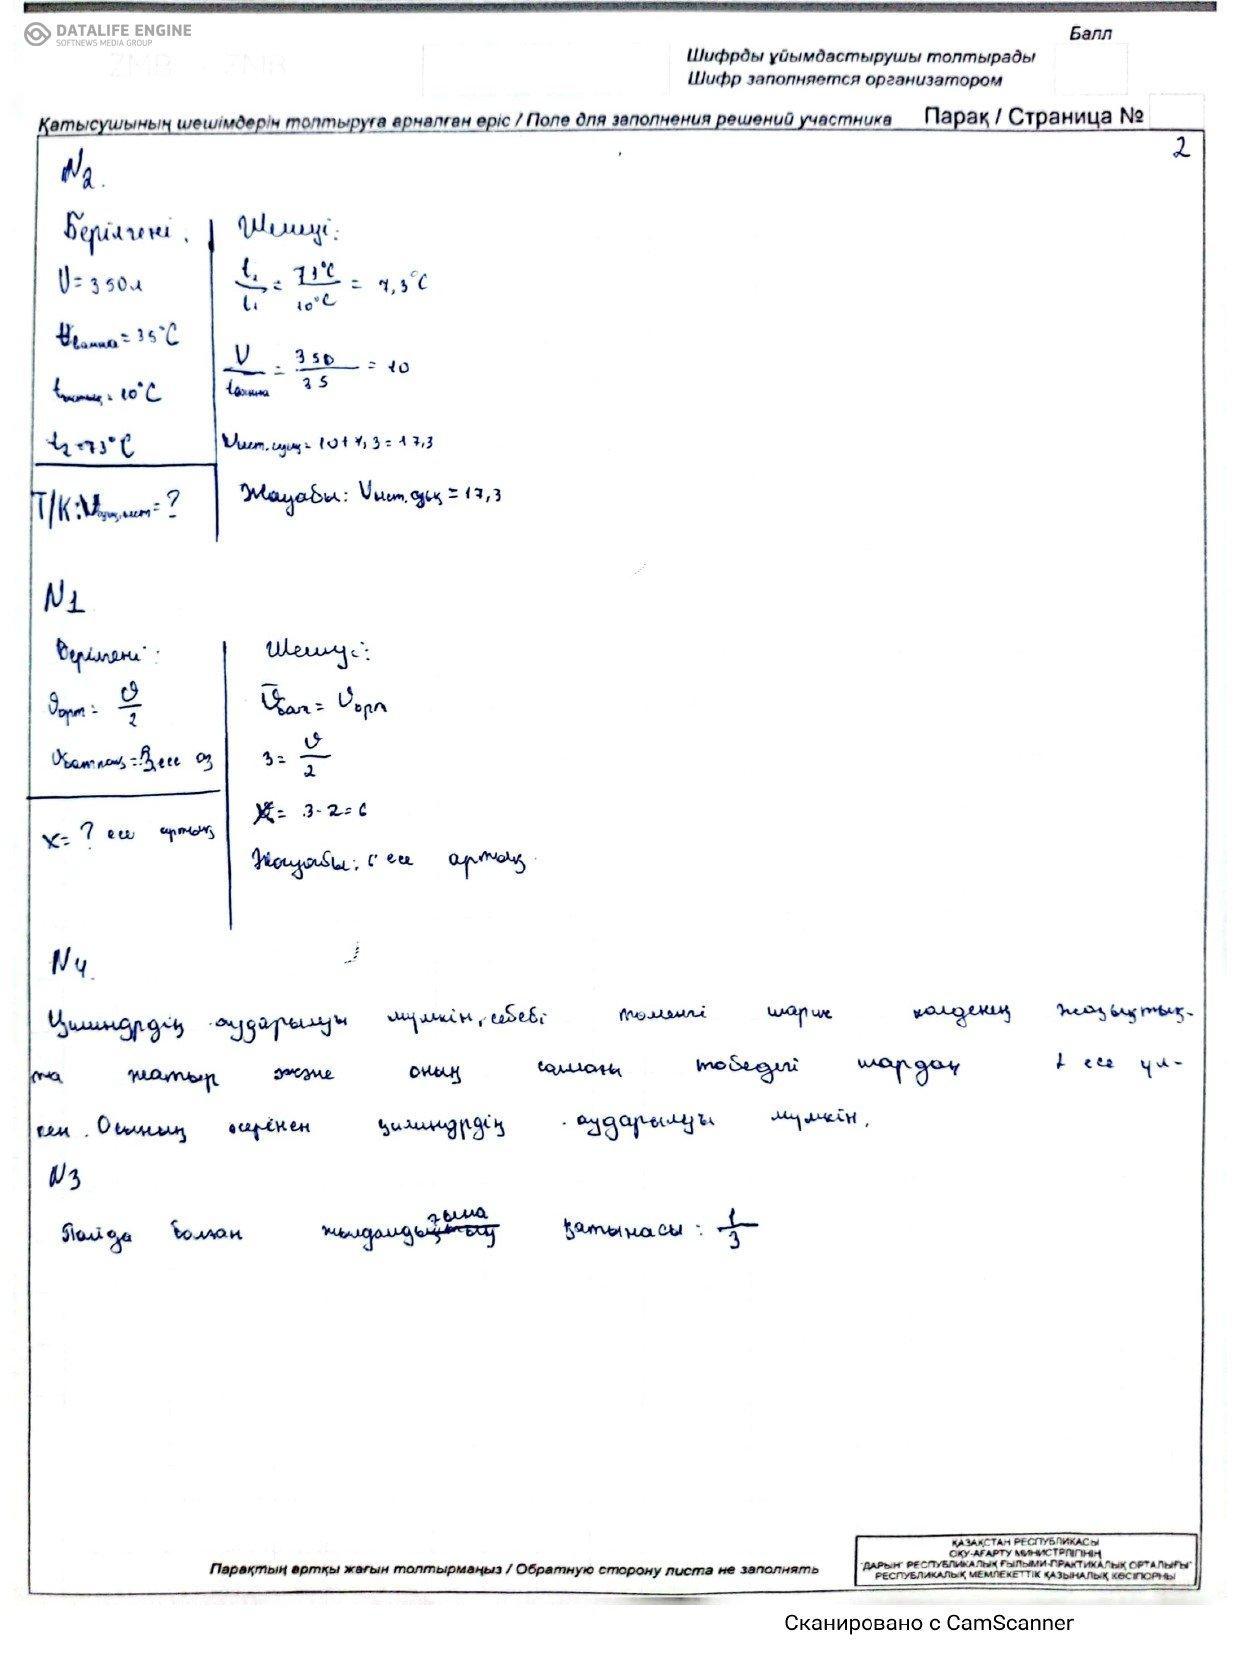 DATALIFE ENGINE
SOFTNEWS MEDIA GROUP
Балл
Шифрды ұйымдастырушы толтырады
Шифр заполняется организатором
Қатысушының шешімдерін толтыруға арналған еріс / Поле для заполнения решений участника
Парақ / Страница №
2
N2.
Берілгені.
Шешуі:
V = 350л
t₂/t₁ = 73°C/10°C = 7,3°C
tванна = 35°C
V/tванна = 350/35 = 10
tыстық = 10°C
t₂ = 73°C
Vыст.суық = 10 + 7,3 = 17,3
Т/К: = ?
Жауабы: Vыст.суық = 17,3
N1
Берілгені:
Шешуі:
ϑорт = ϑ/2
ϑбат = ϑорт
ϑбатпақ = 3 есе аз
3 = ϑ/2
x = ? есе артық
x = 3·2 = 6
Жауабы: 6 есе артық.
N4.
Цилиндрдің аударылуы мүмкін, себебі төменгі шарик көлденең жазықтық-
та жатыр және оның салмағы төбедегі шардан есе үл-
кен. Осының әсерінен цилиндрдің аударылуы мүмкін.
N3
Пайда болған қатынасы: 1/3
Парақтың артқы жағын толтырмаңыз / Обратную сторону листа не заполнять
ҚАЗАҚСТАН РЕСПУБЛИКАСЫ
ОҚУ-АҒАРТУ МИНИСТРЛІГІНІҢ
"ДАРЫН" РЕСПУБЛИКАЛЫҚ ҒЫЛЫМИ-ПРАКТИКАЛЫҚ ОРТАЛЫҒЫ"
РЕСПУБЛИКАЛЫҚ МЕМЛЕКЕТТІК ҚАЗЫНАЛЫҚ КӘСІПОРНЫ
Сканировано с CamScanner